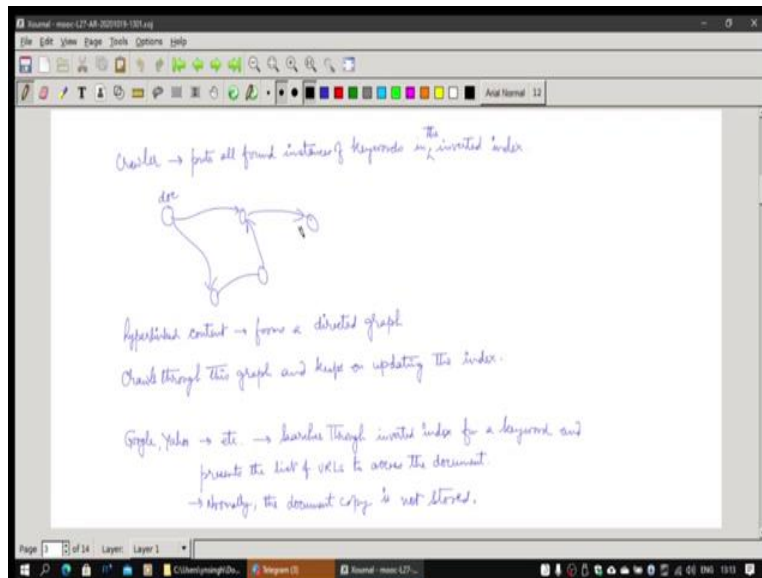 Xournal - mooc-L27-AR-20201019-1301.xoj
File Edit View Page Tools Options Help
Arial Normal 12
Crawler → puts all found instances of keywords in the inverted index
doc
hyperlinked content → forms a directed graph
Crawls through this graph and keeps on updating the index.
Google, Yahoo → etc. → searches through inverted index for a keyword and
presents the list of URLs to access the document.
→ Normally, the document copy is not stored.
Page 3 of 14 Layer: Layer 1
C:\Users\ynsingh\Do... Telegram (3) Xournal - mooc-L27-... ENG 13:13